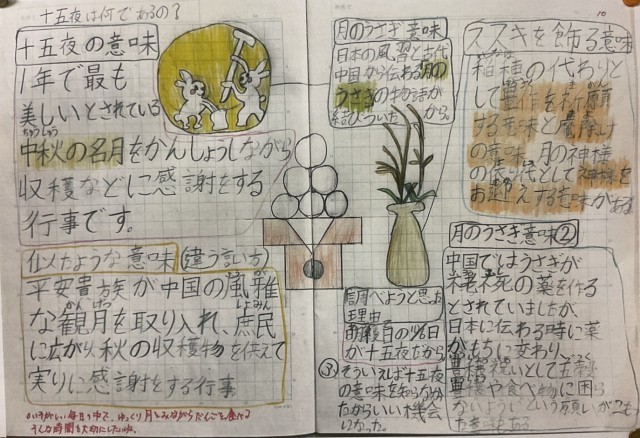 十五夜は何であるの?
十五夜の意味
1年で最も
美しいとされている
ちゅうしゅう
中秋の名月をかんしょうしながら
収穫などに感謝をする
行事です。
似たような意味(違う言い方)
平安貴族が中国の風雅
かんげつ
な観月を取り入れ、庶民
に広がり、秋の収穫物を供えて
実りに感謝をする行事
いそがしい毎日の中で、ゆっくり月をみながらだんごを食べる
そんな時間を大切にしたいね。
月のうさぎ意味
日本の風習と古代
中国から伝わる月の
うさぎの物語が
結びついたから。
調べようと思った
理由
9月6日
が十五夜だから
③そういえば十五夜
の意味を知らなかっ
たからいい機会
10
ススキを飾る意味
稲穂の代わりと
して豊作を祈願
する意味と魔除け
の意味、月の神様
の依り代として神様を
お迎えする意味がある
月のうさぎ意味②
中国ではうさぎが
不老不死の薬を作る
とされていましたが、
日本に伝わる時に薬
がもちに変わり、
豊穣祝いとして五穀
豊穣や食べ物に困ら
ないようにという願いがこも